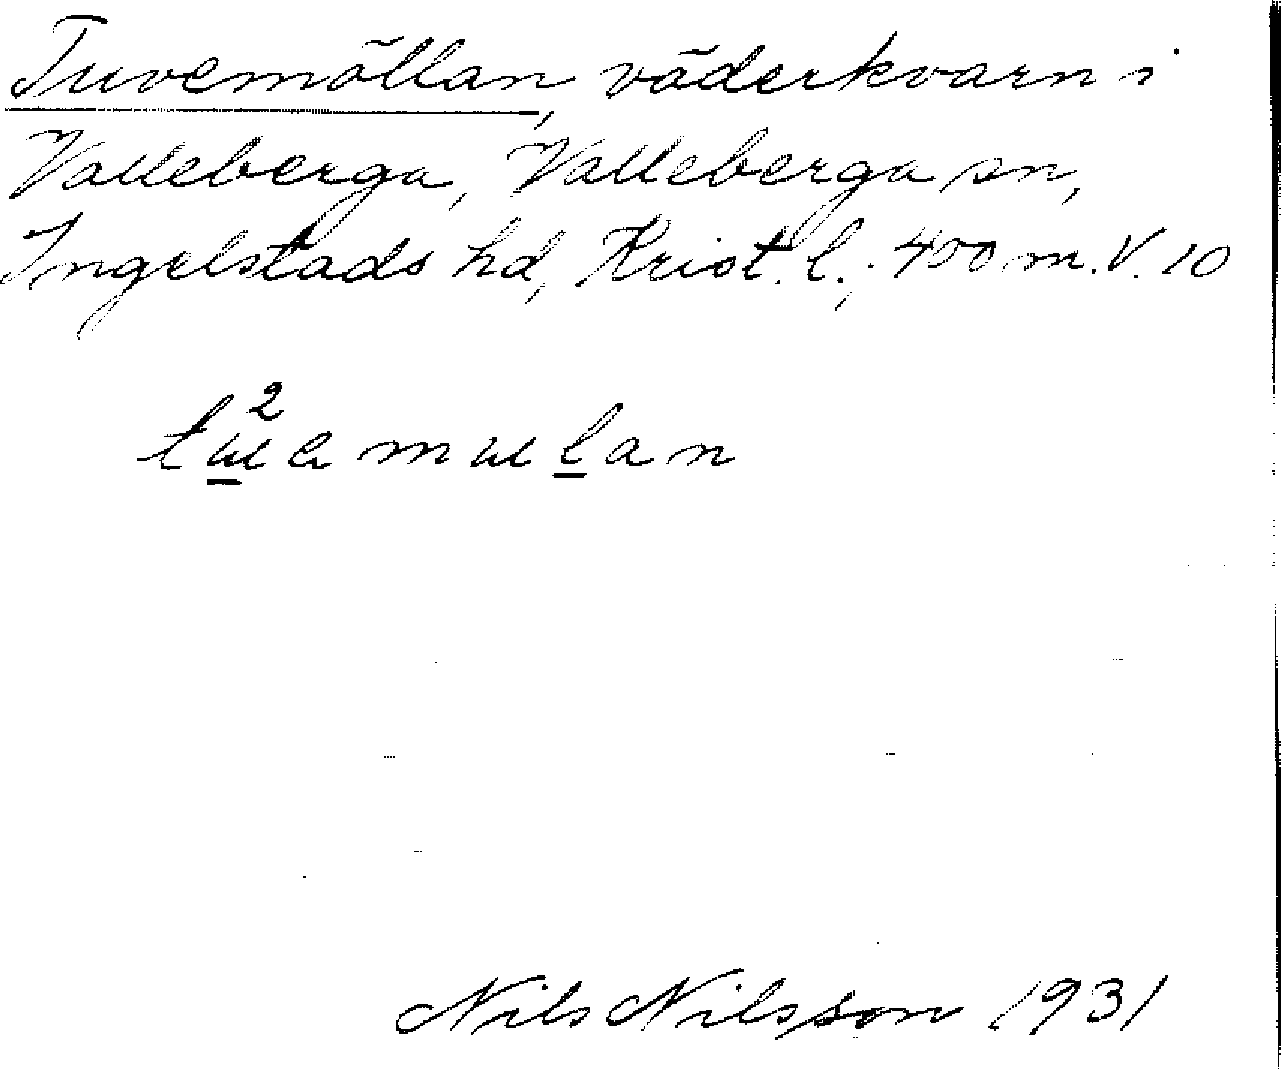 Tuvemöllan, väderkvarn i
Valleberga, Valleberga sn,
Ingelstads hd, Krist. l.; 400 m. V. 10
Nils Nilsson 1931